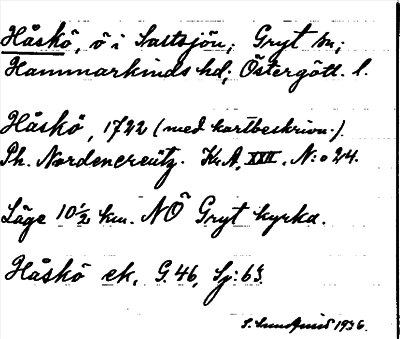 Håskö, ö i Saltsjön; Gryt sn;
Hammarkinds hd; Östergötl. l.
Håskö, 1722 (med kartbeskrivn.).
Ph. Nordencreutz. Kr.A. XXII. N:o 24.
Läge 10 1/2 km. NÖ Gryt kyrka.
Håskö ek. G. 46, Sj: 63.
S. Lundquist 1936.